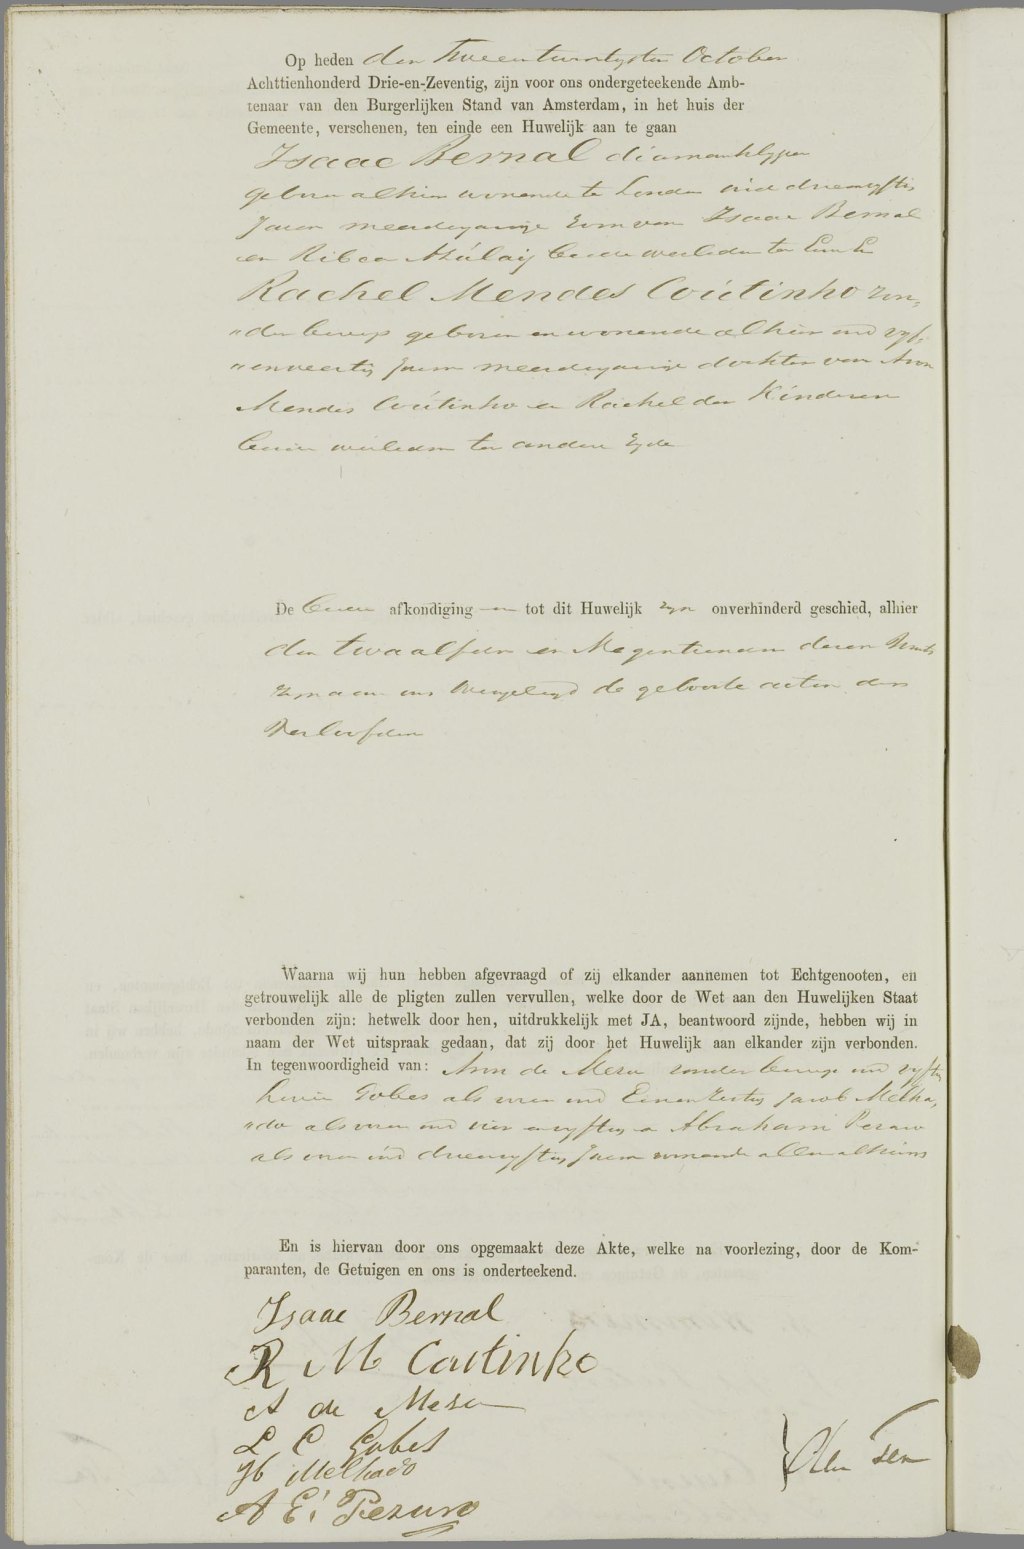 Op heden den Tweeentwintigsten October
Achttienhonderd Drie-en-Zeventig, zijn voor ons ondergeteekende Amb-
tenaar van den Burgerlijken Stand van Amsterdam, in het huis der
Gemeente, verschenen, ten einde een Huwelijk aan te gaan
Isaac Bernal diamantslyper
geboren alhier wonende te Londen oud drieenvyftig
Jaren meerderjarige zoon van Isaac Bernal
en Ribca Azulaij beide overleden ter Eenre En
Rachel Mendes Coutinho zon-
"der beroep geboren en wonende alhier oud vyf-
"enveertig Jaren meerderjarige dochter van Aron
Mendes Coutinho en Rachel der Kinderen
beide overleden ter andere Zyde
De beide afkondiging en tot dit Huwelijk zyn onverhinderd geschied, alhier
den twaalfden en Negentienden dezer
zyn aan ons overgelegd de geboorte acten der
Verloofden
Waarna wij hun hebben afgevraagd of zij elkander aannemen tot Echtgenooten, en
getrouwelijk alle de pligten zullen vervullen, welke door de Wet aan den Huwelijken Staat
verbonden zijn: hetwelk door hen, uitdrukkelijk met JA, beantwoord zijnde, hebben wij in
naam der Wet uitspraak gedaan, dat zij door het Huwelijk aan elkander zijn verbonden.
In tegenwoordigheid van: Aron de Meza zonder beroep oud vyftig
Levie Gobes als voren oud Eenenzestig Jacob Melha-
"do als voren oud vier envyftig en Abraham Pezaro
als voren oud drieenvyftig Jaren wonende allen alhier
En is hiervan door ons opgemaakt deze Akte, welke na voorlezing, door de Kom-
paranten, de Getuigen en ons is onderteekend.
Isaac Bernal
R M Coutinho
A de Meza
L C Gobes
Melhado
A E: Pezaro